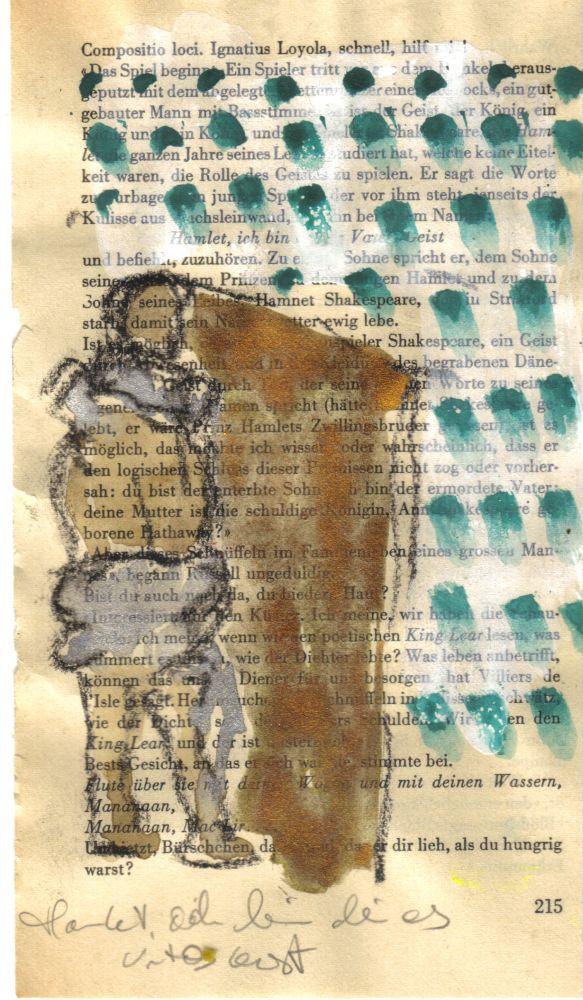 Compositio loci. Ignatius Loyola, schnell, hilf mir!
«Das Spiel beginnt. Ein Spieler tritt dem heraus-
geputzt mit dem abgelegten eines ein gut-
gebauter Mann mit Bassstimme. ist der Geist, der König, ein
König und kein König, und Shakespeare, der Ham-
let die ganzen Jahre seines Lebens studiert hat, welche keine Eitel-
keit waren, die Rolle des Geistes zu spielen. Er sagt die Worte
zu Burbage, dem jungen Spieler, der vor ihm steht jenseits der
Kulisse aus Wachsleinwand, ihn bei dem Namen:
Hamlet, ich bin deines Vaters Geist
und befiehlt, zuzuhören. Zu einem Sohne spricht er, dem Sohne
seiner dem Prinzen, zu dem jungen Hamlet und zu dem
Sohne seines Leibes, Hamnet Shakespeare, der in Stratford
starb, damit sein Namensvetter ewig lebe.
Ist es möglich, Schauspieler Shakespeare, ein Geist
durch Abwesenheit, und in des begrabenen Däne-
Geist durch Tod, der seine Worte zu seines
eigenen Namen spricht (hätte Hamnet Shakespeare ge-
lebt, er wäre Prinz Hamlets Zwillingsbruder gewesen), ist es
möglich, das möchte ich wissen, oder wahrscheinlich, dass er
den logischen Schluss dieser Prämissen nicht zog oder vorher-
sah: du bist der enterbte Sohn: ich bin der ermordete Vater:
deine Mutter ist die schuldige Königin, Ann Shakespeare, ge-
borene Hathaway?»
«Aber dieses Schnüffeln im Familienleben eines grossen Man-
nes», begann Russell ungeduldig.
Bist du auch noch da, du biedere Haut?
«Interessiert nur den Küster. Ich meine, wir haben die Schau-
spiele. Ich meine, wenn wir den poetischen King Lear lesen, was
kümmert es uns da, wie der Dichter lebte? Was leben anbetrifft,
können das unsere Diener für uns besorgen, hat Villiers de
l'Isle gesagt. Her schnüffeln in
wie der Dichter des Schulden. Wir haben den
King Lear: und der ist unsterblich.»
Bests Gesicht, an das er sich wandte, stimmte bei.
Flute über sie mit deinen Wogen und mit deinen Wassern,
Mananaan,
Mananaan, MacLir.
Und jetzt, Bürschchen, das Pfund, das er dir lieh, als du hungrig
warst?
215
Hamlet, ich bin deines
Vaters Geist